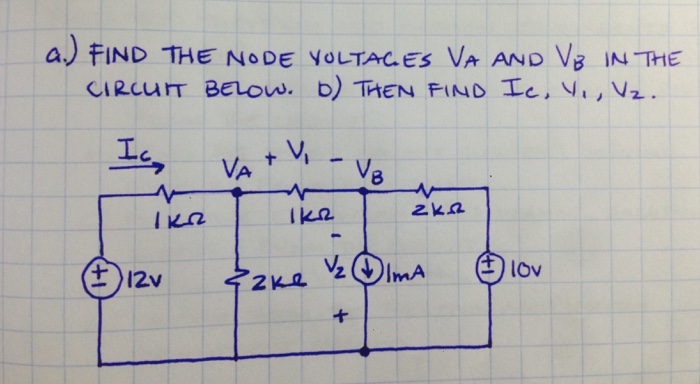 a.) FIND THE NODE VOLTAGES VA AND VB IN THE
CIRCUIT BELOW. b) THEN FIND Ic, V1, V2.
Ic
VA + V1 - VB
1KΩ 1KΩ 2KΩ
-
+ - 12V 2KΩ V2 1mA + - 10V
+